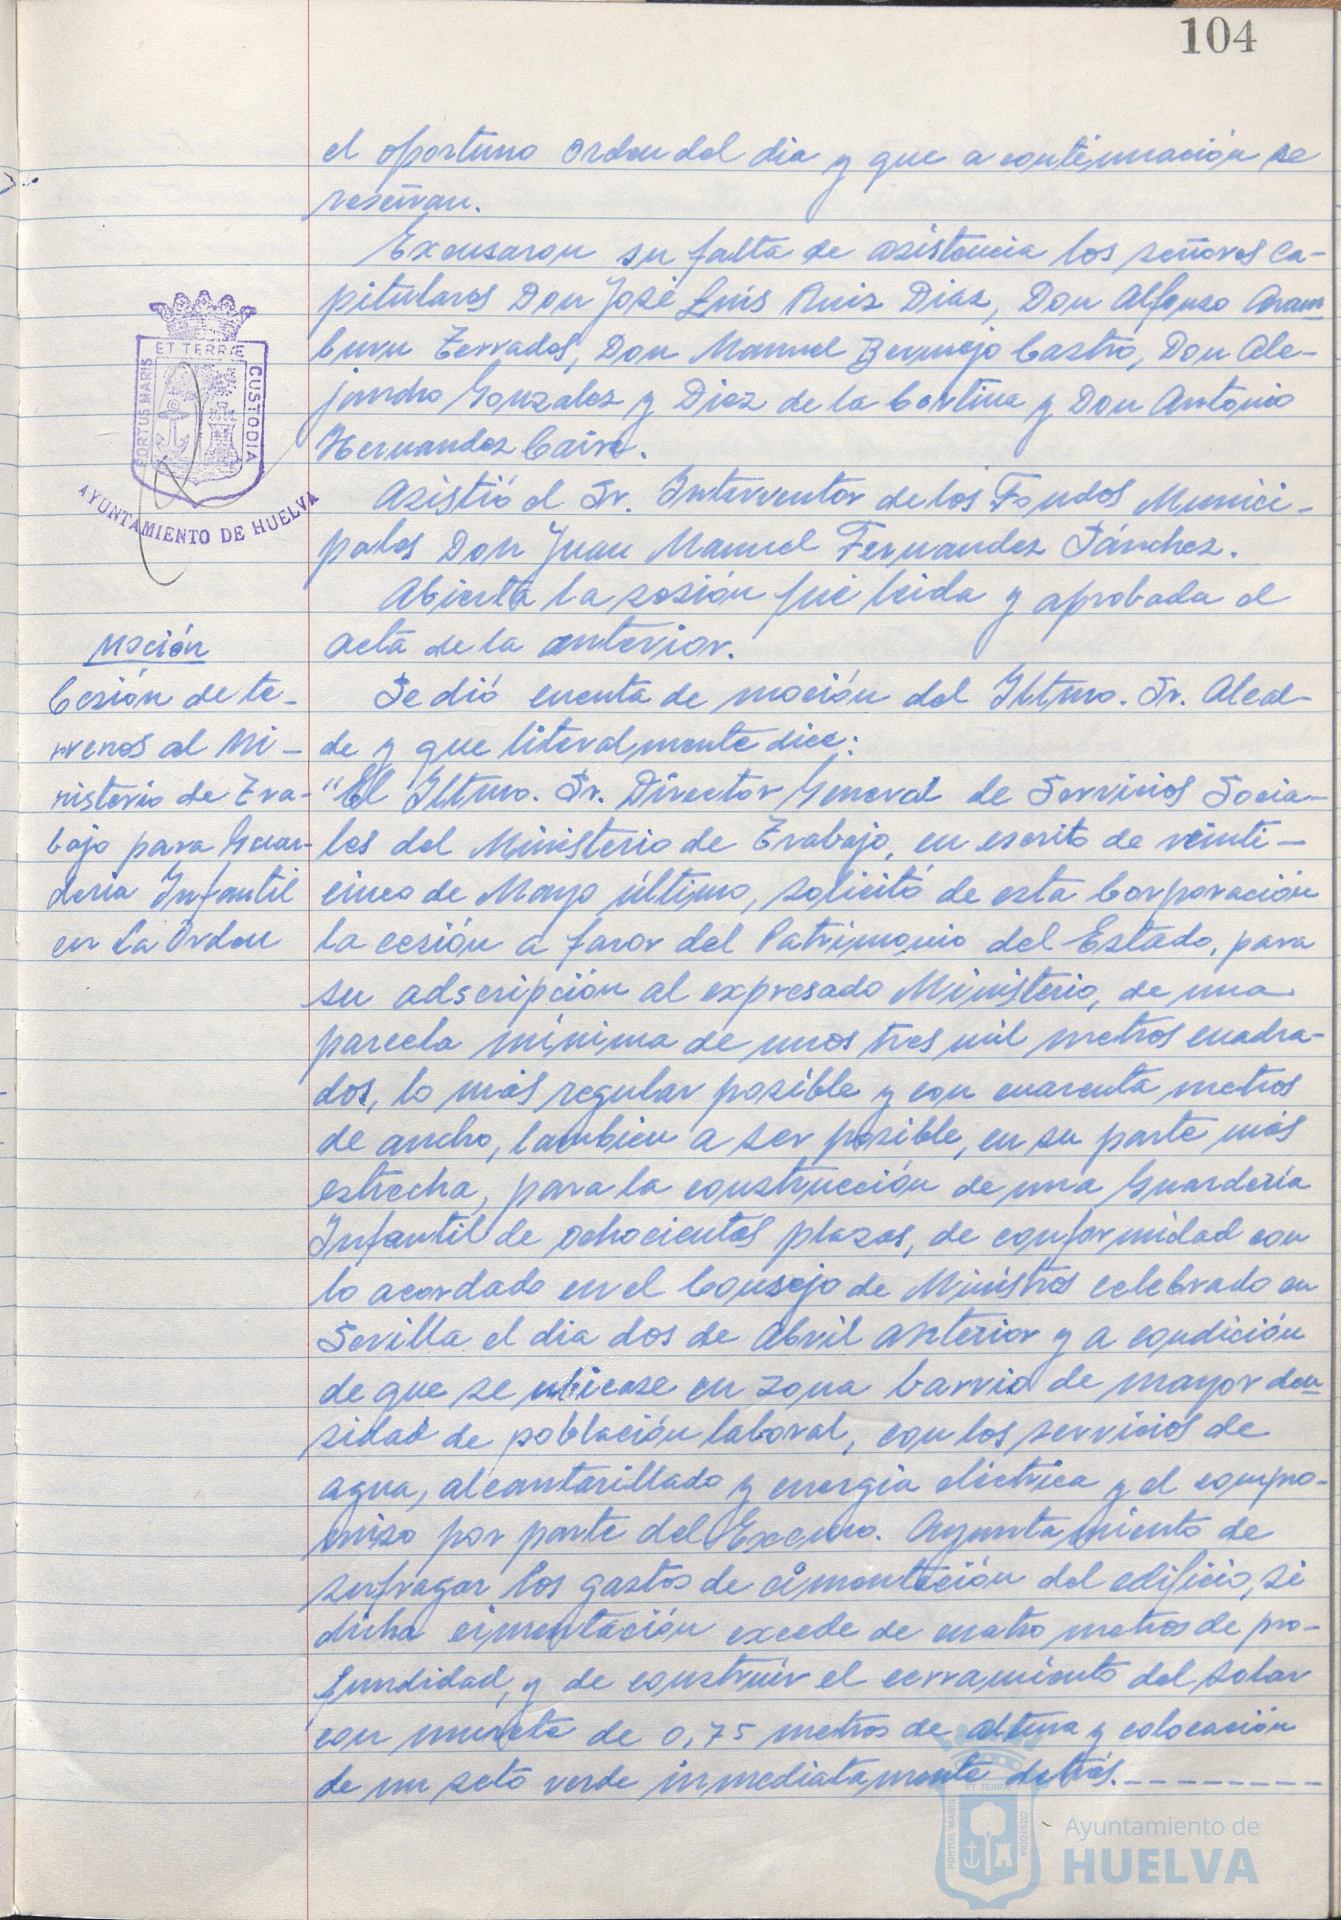 104
el oportuno orden del dia y que a continuación se
reseñan.
Excusaron su falta de asistencia los señores Ca-
pitulares Don José Luis Ruiz Diaz, Don Alfonso Aram-
buru Terrados, Don Manuel Bermejo Castro, Don Ale-
jandro Gonzalez y Diez de la Cortina y Don Antonio
Hernandez Cairo.
Asistió el Sr. Interventor de los Fondos Munici-
pales Don Juan Manuel Fernandez Sánchez.
Abierta la sesión fué leida y aprobada el
acta de la anterior.
ET TERRÆ
PORTUS MARIS
CUSTODIA
AYUNTAMIENTO DE HUELVA
Moción
Cesión de te-
rrenos al Mi-
nisterio de Tra-
bajo para Guar-
deria Infantil
en La Orden
Se dió cuenta de moción del Iltmo. Sr. Alcal-
de y que literalmente dice:
"El Iltmo. Sr. Director General de Servicios Socia-
les del Ministerio de Trabajo, en escrito de veinti-
cinco de Mayo último, solicitó de esta Corporación
la cesión a favor del Patrimonio del Estado, para
su adscripción al expresado Ministerio, de una
parcela mínima de unos tres mil metros cuadra-
dos, lo más regular posible y con cuarenta metros
de ancho, tambien a ser posible, en su parte más
estrecha, para la construcción de una Guardería
Infantil de ochocientas plazas, de conformidad con
lo acordado en el Consejo de Ministros celebrado en
Sevilla el dia dos de Abril anterior y a condición
de que se ubicase en zona barrio de mayor den-
sidad de población laboral, con los servicios de
agua, alcantarillado y energia eléctrica y el compro-
miso por parte del Excmo. Ayuntamiento de
sufragar los gastos de cimentación del edificio, si
dicha cimentación excede de cuatro metros de pro-
fundidad, y de construir el cerramiento del solar
con murete de 0,75 metros de altura y colocación
de un seto verde inmediatamente detrás.---------
ET TERRA
PORTUS MARIS
CUSTODIA
Ayuntamiento de
HUELVA